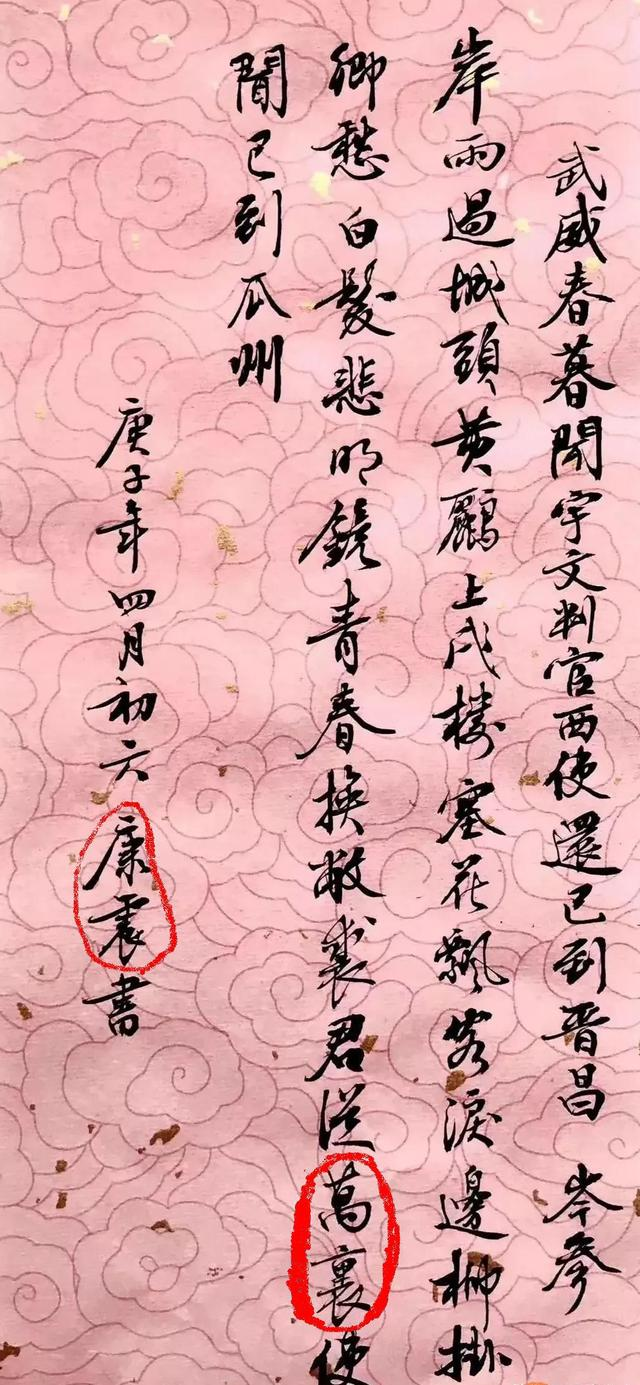 武威春暮聞宇文判官西使還已到晋昌 岑參
岸雨過城頭黄鸝上戍樓塞花飄客淚邊柳掛
卿愁白髮悲明鏡青春換敝裘君從萬裏使
聞已到瓜州
庚子年四月初六康震書